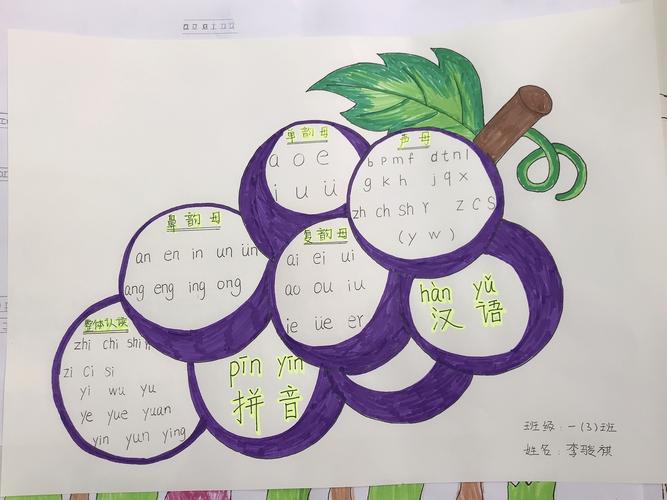 单韵母
a o e
i u ü
声母
b p m f d t n l
g k h j q x
zh ch sh r z c s
(y w)
鼻韵母
an en in un ün
ang eng ing ong
复韵母
ai ei ui
ao ou iu
ie üe er
hàn yǔ
汉语
整体认读
zhi chi shi
zi ci si
yi wu yu
ye yue yuan
yin yun ying
pīn yīn
拼音
班级:一(3)班
姓名:李骏祺